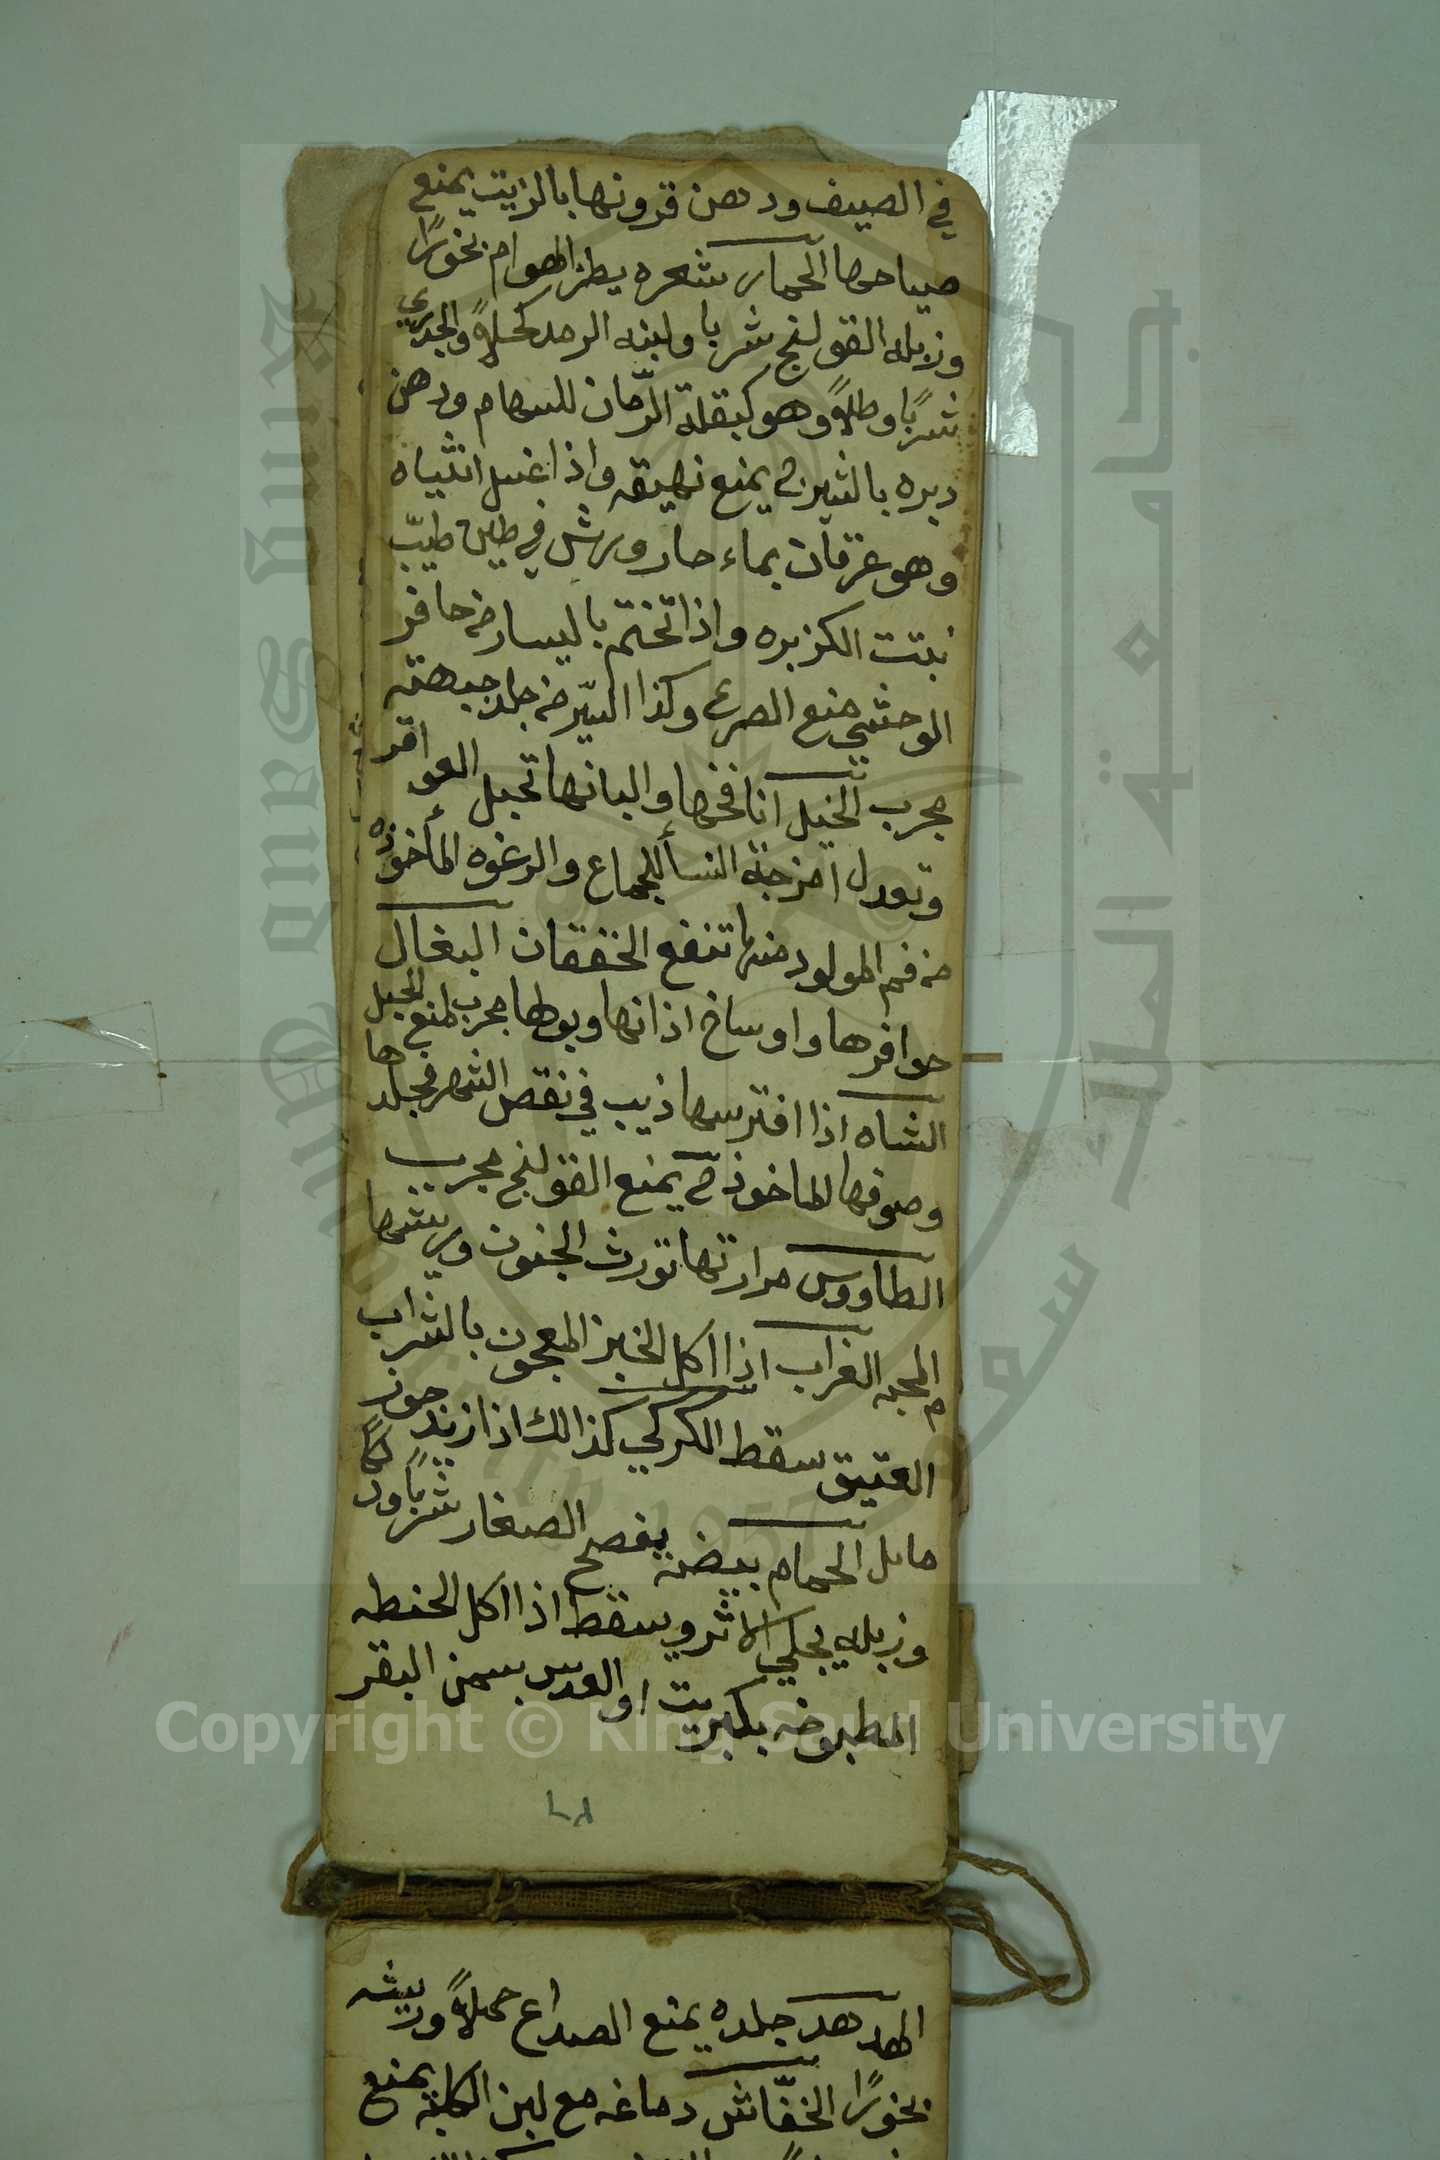 في الصيف ودهن قرونها بالزيت يمنع
صياحها الحمار شعره يطرد الهوام بخورًا
وزبله القولنج شربا ولبنه الرمد كحلاً والجدري
شربًا وطلاً وهو كبقلة الرّمان للسهام ودهن
دبره بالشيرج يمنع نهيقه واذا غسل انثياه
وهو عرقان بماء حار ورش في طين طيّب
نبتت الكزبره واذا تختم باليسار من حافر
الوحشي منع الصرع وكذا السيّر من جلد جبهته
مجرب الخيل انافخها والبانها تحبل العواقر
وتعدل امزجة النسأ للجماع والرغوه المأخوذه
من فم المولود منها تنفع الخفقان البغال
حوافرها واوساخ اذانها وبولها مجرب لمنع الحبل
الشاه اذا افترسها ذيب في نقص الشهر فجلدها
وصوفها الماخوذ ح يمنع القولنج مجرب
الطاووس مرارتها تورث الجنون وريشها
المحبه الغراب اذا اكل الخبز المعجون بالشراب
العتيق سقط الكركي كذالك اذا زيد جوز
ماىل الحمام بيضه يفصح الصغار شربًا ودلكًا
وزبله يجلي الاثر ويسقط اذا اكل الحنطه
المطبوخه بكبريت او العدس بسمن البقر
الهدهد جلده يمنع الصداع حملاً وريشه
بخورًا الخفّاش دماغه مع لبن الكلبة يمنع
Copyright © King Saud University
جامعة الملك سعود
King Saud University
1957